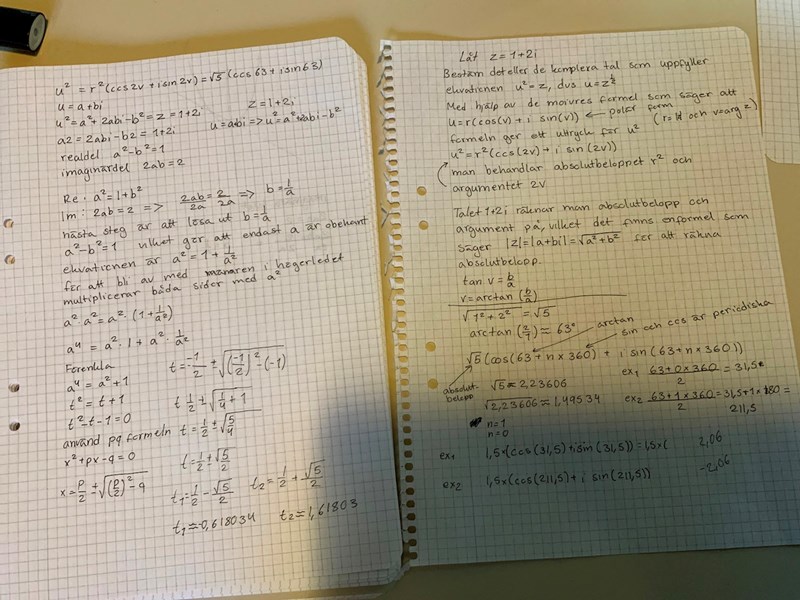 u² = r²(cos2v + isin2v) = √5 (cos63 + isin63)
u = a+bi
u² = a² + 2abi - b² = z = 1+2i
z = 1+2i
a2 = 2abi - b2 = 1+2i
u = a+bi => u² = a² + 2abi - b²
realdel a² - b² = 1
imaginärdel 2ab = 2
Re: a² = 1+b²
Im: 2ab = 2 => 2ab/2a = 2/2a => b = 1/a
nästa steg är att lösa ut b = 1/a
a² - b² = 1 vilket gör att endast a är obekant
ekvationen är a² = 1 + 1/a²
för att bli av med nämnaren i högerledet
multiplicerar båda sider med a²
a² · a² = a² · (1 + 1/a²)
a⁴ = a² · 1 + a² · 1/a²
Förenkla
a⁴ = a² + 1
t² = t + 1
t² - t - 1 = 0
använd pq formeln
x² + px - q = 0
x = p/2 ± √((p/2)² - q)
t = -1/2 ± √((-1/2)² - (-1))
t 1/2 ± √(1/4 + 1)
t = 1/2 ± √(5/4)
t = 1/2 ± √5/2
t₁ = 1/2 - √5/2 t₂ = 1/2 + √5/2
t₁ ≈ -0,618034 t₂ ≈ 1,61803
Låt z = 1+2i
Bestäm det eller de komplexa tal som uppfyller
ekvationen u² = z, dvs u = z^½
Med hjälp av de moivres formel som säger att
u = r(cos(v) + i sin(v)) ← polär form
(r = |z| och v = arg z)
formeln ger ett uttryck för u²
u² = r²(cos(2v) + i sin(2v))
man behandlar absolutbeloppet r² och
argumentet 2v
Talet 1+2i räknar man absolutbelopp och
argument på, vilket det finns en formel som
säger |z| = |a+bi| = √(a²+b²) för att räkna
absolutbelopp.
tan v = b/a
v = arctan (b/a)
√(1² + 2²) = √5
arctan (2/1) ≈ 63°
arctan
sin och cos är periodiska
√5 (cos(63 + n × 360) + i sin(63 + n × 360))
absolut-
belopp
√5 ≈ 2,23606
√2,23606 ≈ 1,49534
ex₁ (63+0×360)/2 = 31,5°
ex₂ (63+1×360)/2 = 31,5 + 1×180 =
211,5
n = 1
n = 0
ex₁ 1,5×(cos(31,5) + isin(31,5)) = 1,5×( 2,06
ex₂ 1,5×(cos(211,5) + i sin(211,5)) -2,06